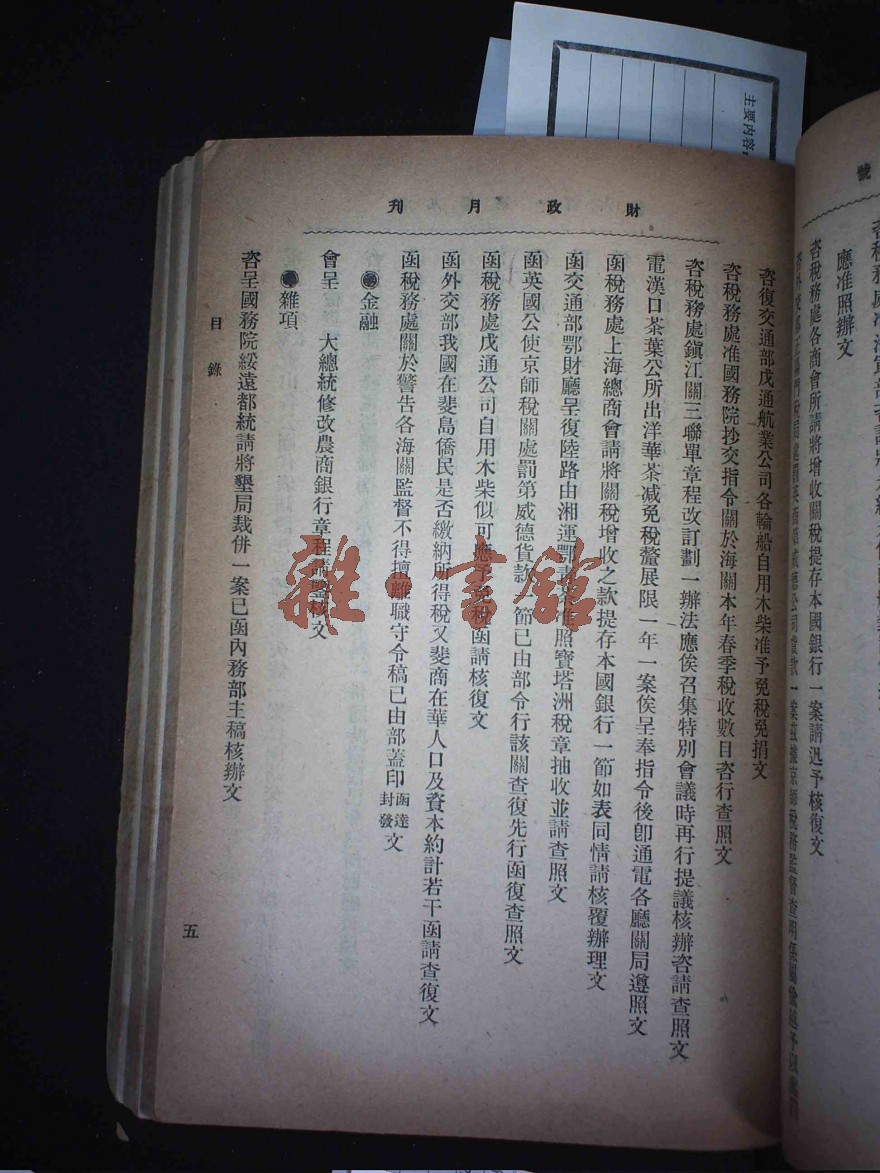 主要內容
號
應准照辦文
咨稅務處各商會所請將增收關稅提存本國銀行一案請迅予核復文
財政月刊
咨復交通部戊通航業公司各輪船自用木柴准予免稅免捐文
咨稅務處准國務院抄交指令關於海關本年春季稅收數目咨行查照文
咨稅務處鎮江關三聯單章程改訂劃一辦法應俟召集特別會議時再行提議核辦咨請查照文
電漢口茶葉公所出洋華茶減免稅釐展限一年一案俟呈奉指令後卽通電各廳關局遵照文
函稅務處上海總商會請將關稅增收之款提存本國銀行一節如表同情請核覆辦理文
函交通部鄂財廳呈復陸路由湘運鄂准照寶塔洲稅章抽收並請查照文
函英國公使京師稅關處罰第威德貨款一節已由部令行該關查復先行函復查照文
函稅務處戊通公司自用木柴似可應予免稅函請核復文
函外交部我國在斐島僑民是否繳納所得稅又斐商在華人口及資本約計若干函請查復文
函稅務處關於警告各海關監督不得擅離職守令稿已由部蓋印函達封發文
●金融
會呈 大總統修改農商銀行章程請鑒核文
●雜項
咨呈國務院綏遠都統請將墾局裁併一案已函內務部主稿核辦文
目錄
五
雜·書館